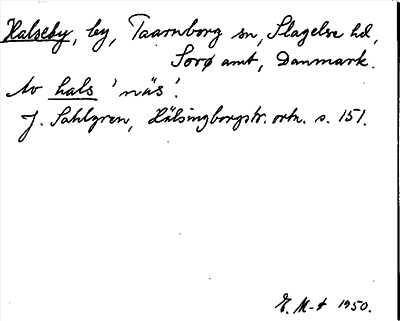 Halseby, by, Taarnborg sn, Slagelse hd,
Sorø amt, Danmark.
Av hals 'näs'.
J. Sahlgren, Hälsingborgstr. ortn. s. 151.
E. M-t 1950.